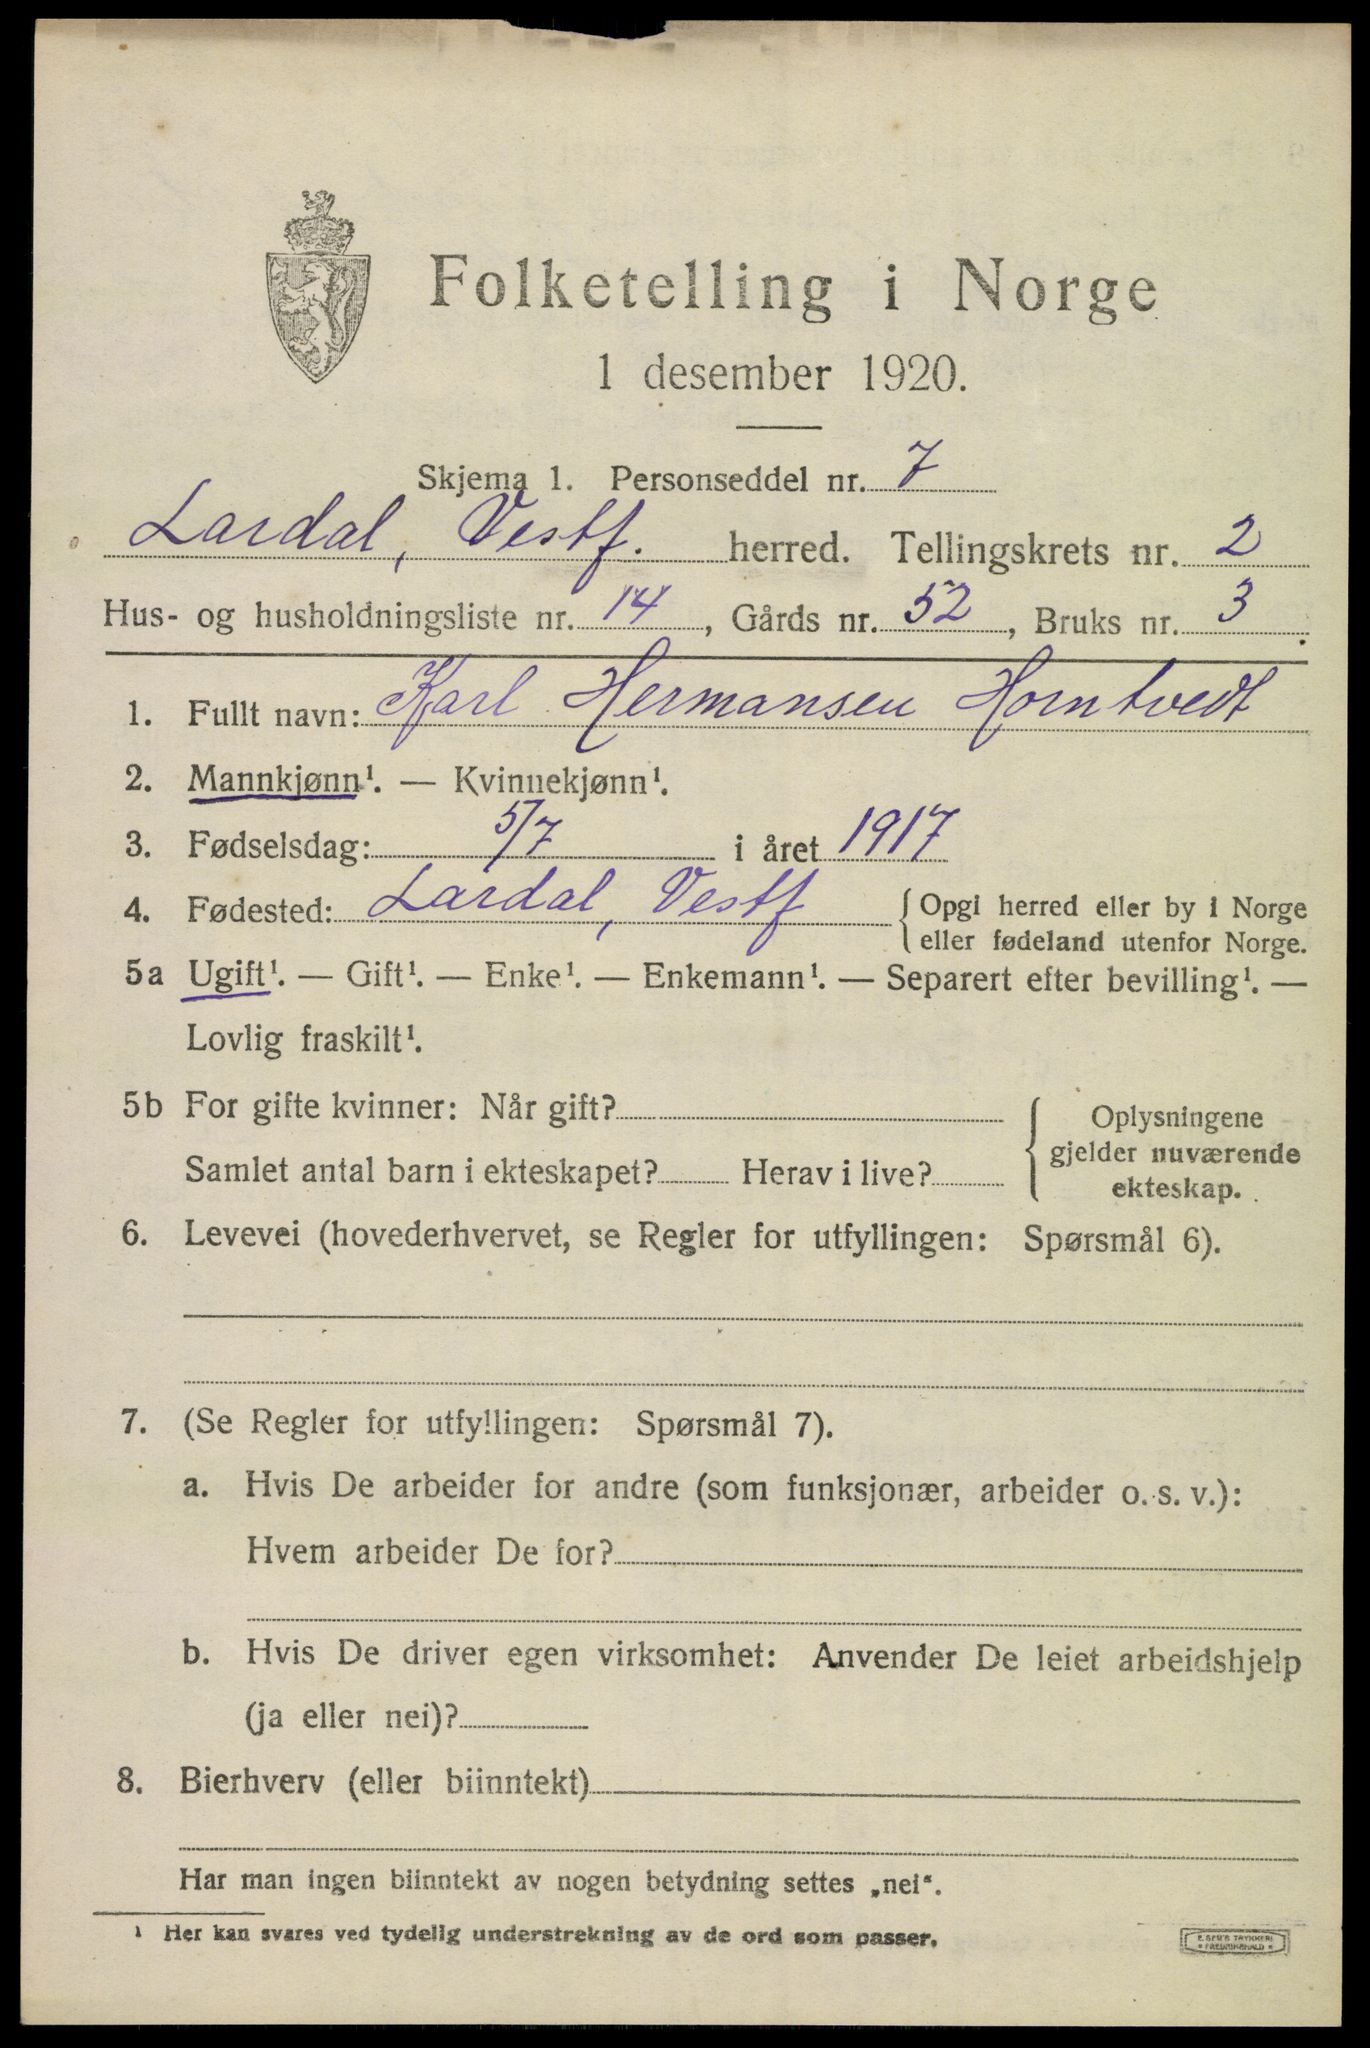 Folketelling i Norge
1 desember 1920.
Skjema 1. Personseddel nr. 7
Lardal, Vestf. herred. Tellingskrets nr. 2
Hus- og husholdningsliste nr. 14, Gårds nr. 52, Bruks nr. 3
1. Fullt navn: Karl Hermansen Horntvedt
2. Mannkjønn¹. — Kvinnekjønn¹.
3. Fødselsdag: 5/7 i året 1917
4. Fødested: Lardal, Vestf { Opgi herred eller by i Norge
eller fødeland utenfor Norge.
5a Ugift¹. — Gift¹. — Enke¹. — Enkemann¹. — Separert efter bevilling¹. —
Lovlig fraskilt¹.
5b For gifte kvinner: Når gift?
Samlet antal barn i ekteskapet? Herav i live?
{ Oplysningene
gjelder nuværende
ekteskap.
6. Levevei (hovederhvervet, se Regler for utfyllingen: Spørsmål 6).
7. (Se Regler for utfyllingen: Spørsmål 7).
a. Hvis De arbeider for andre (som funksjonær, arbeider o. s. v.):
Hvem arbeider De for?
b. Hvis De driver egen virksomhet: Anvender De leiet arbeidshjelp
(ja eller nei)?
8. Bierhverv (eller biinntekt)
Har man ingen biinntekt av nogen betydning settes „nei“.
¹ Her kan svares ved tydelig understrekning av de ord som passer.